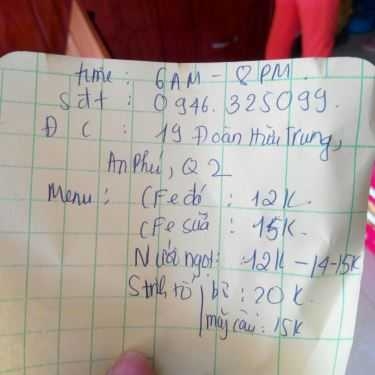 time : 6AM - 8PM.
Sđt : 0946.325099.
Đ C : 19 Đoàn Hữu Trưng,
An Phú, Q 2
Menu : Cfe đá : 12K.
Cfe sữa : 15K.
Nước ngọt : 12K - 14-15K
Sinh tố bơ : 20K.
mãng cầu : 15K